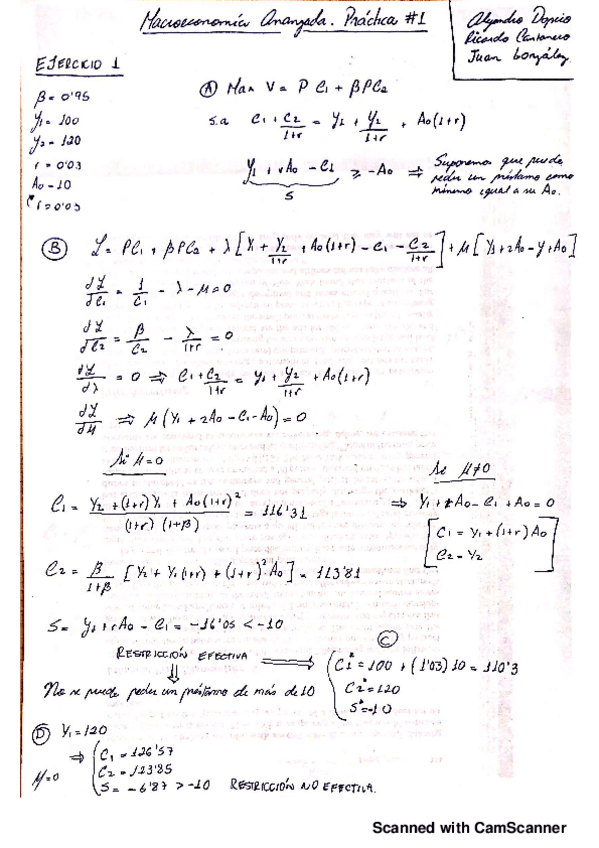 Macroeconomía Avanzada. Práctica #1
Alejandro
Ricardo
Juan González
EJERCICIO 1
β = 0'95
Y1 = 100
Y2 = 120
r = 0'03
A0 = 10
i = 0'03
(A) Max V = P C1 + βPC2
s.a C1 + C2/1+r = Y1 + Y2/1+r + A0(1+r)
Y1 + rA0 - C1 ≥ -A0 ⇒ Suponemos que puede
pedir un préstamo como
mínimo igual a su A0.
S
(B) L = PC1 + βPC2 + λ[Y1 + Y2/1+r + A0(1+r) - C1 - C2/1+r] + μ[Y1 + rA0 - y + A0]
dL/dC1 = 1/C1 - λ - μ = 0
dL/dC2 = β/C2 - λ/1+r = 0
dL/dλ = 0 ⇒ C1 + C2/1+r = Y1 + Y2/1+r + A0(1+r)
dL/dμ ⇒ μ(Y1 + rA0 - C1 - A0) = 0
Si μ = 0
Si μ ≠ 0
C1 = Y2 + (1+r)Y1 + A0(1+r)²/(1+r)(1+β) = 116'31
⇒ Y1 + rA0 - C1 + A0 = 0
[C1 = Y1 + (1+r)A0
C2 = Y2]
C2 = β/1+β [Y2 + Y1(1+r) + (1+r)²A0] = 113'81
S = Y1 + rA0 - C1 = -16'05 < -10
RESTRICCIÓN EFECTIVA
⇓
No se puede pedir un préstamo de más de 10
(C)
C1* = 100 + (1'03)10 = 110'3
C2* = 120
S* = -10
(D) Y1 = 120
μ=0 ⇒ C1 = 126'57
C2 = 123'85
S = -6'87 > -10 RESTRICCIÓN NO EFECTIVA.
Scanned with CamScanner